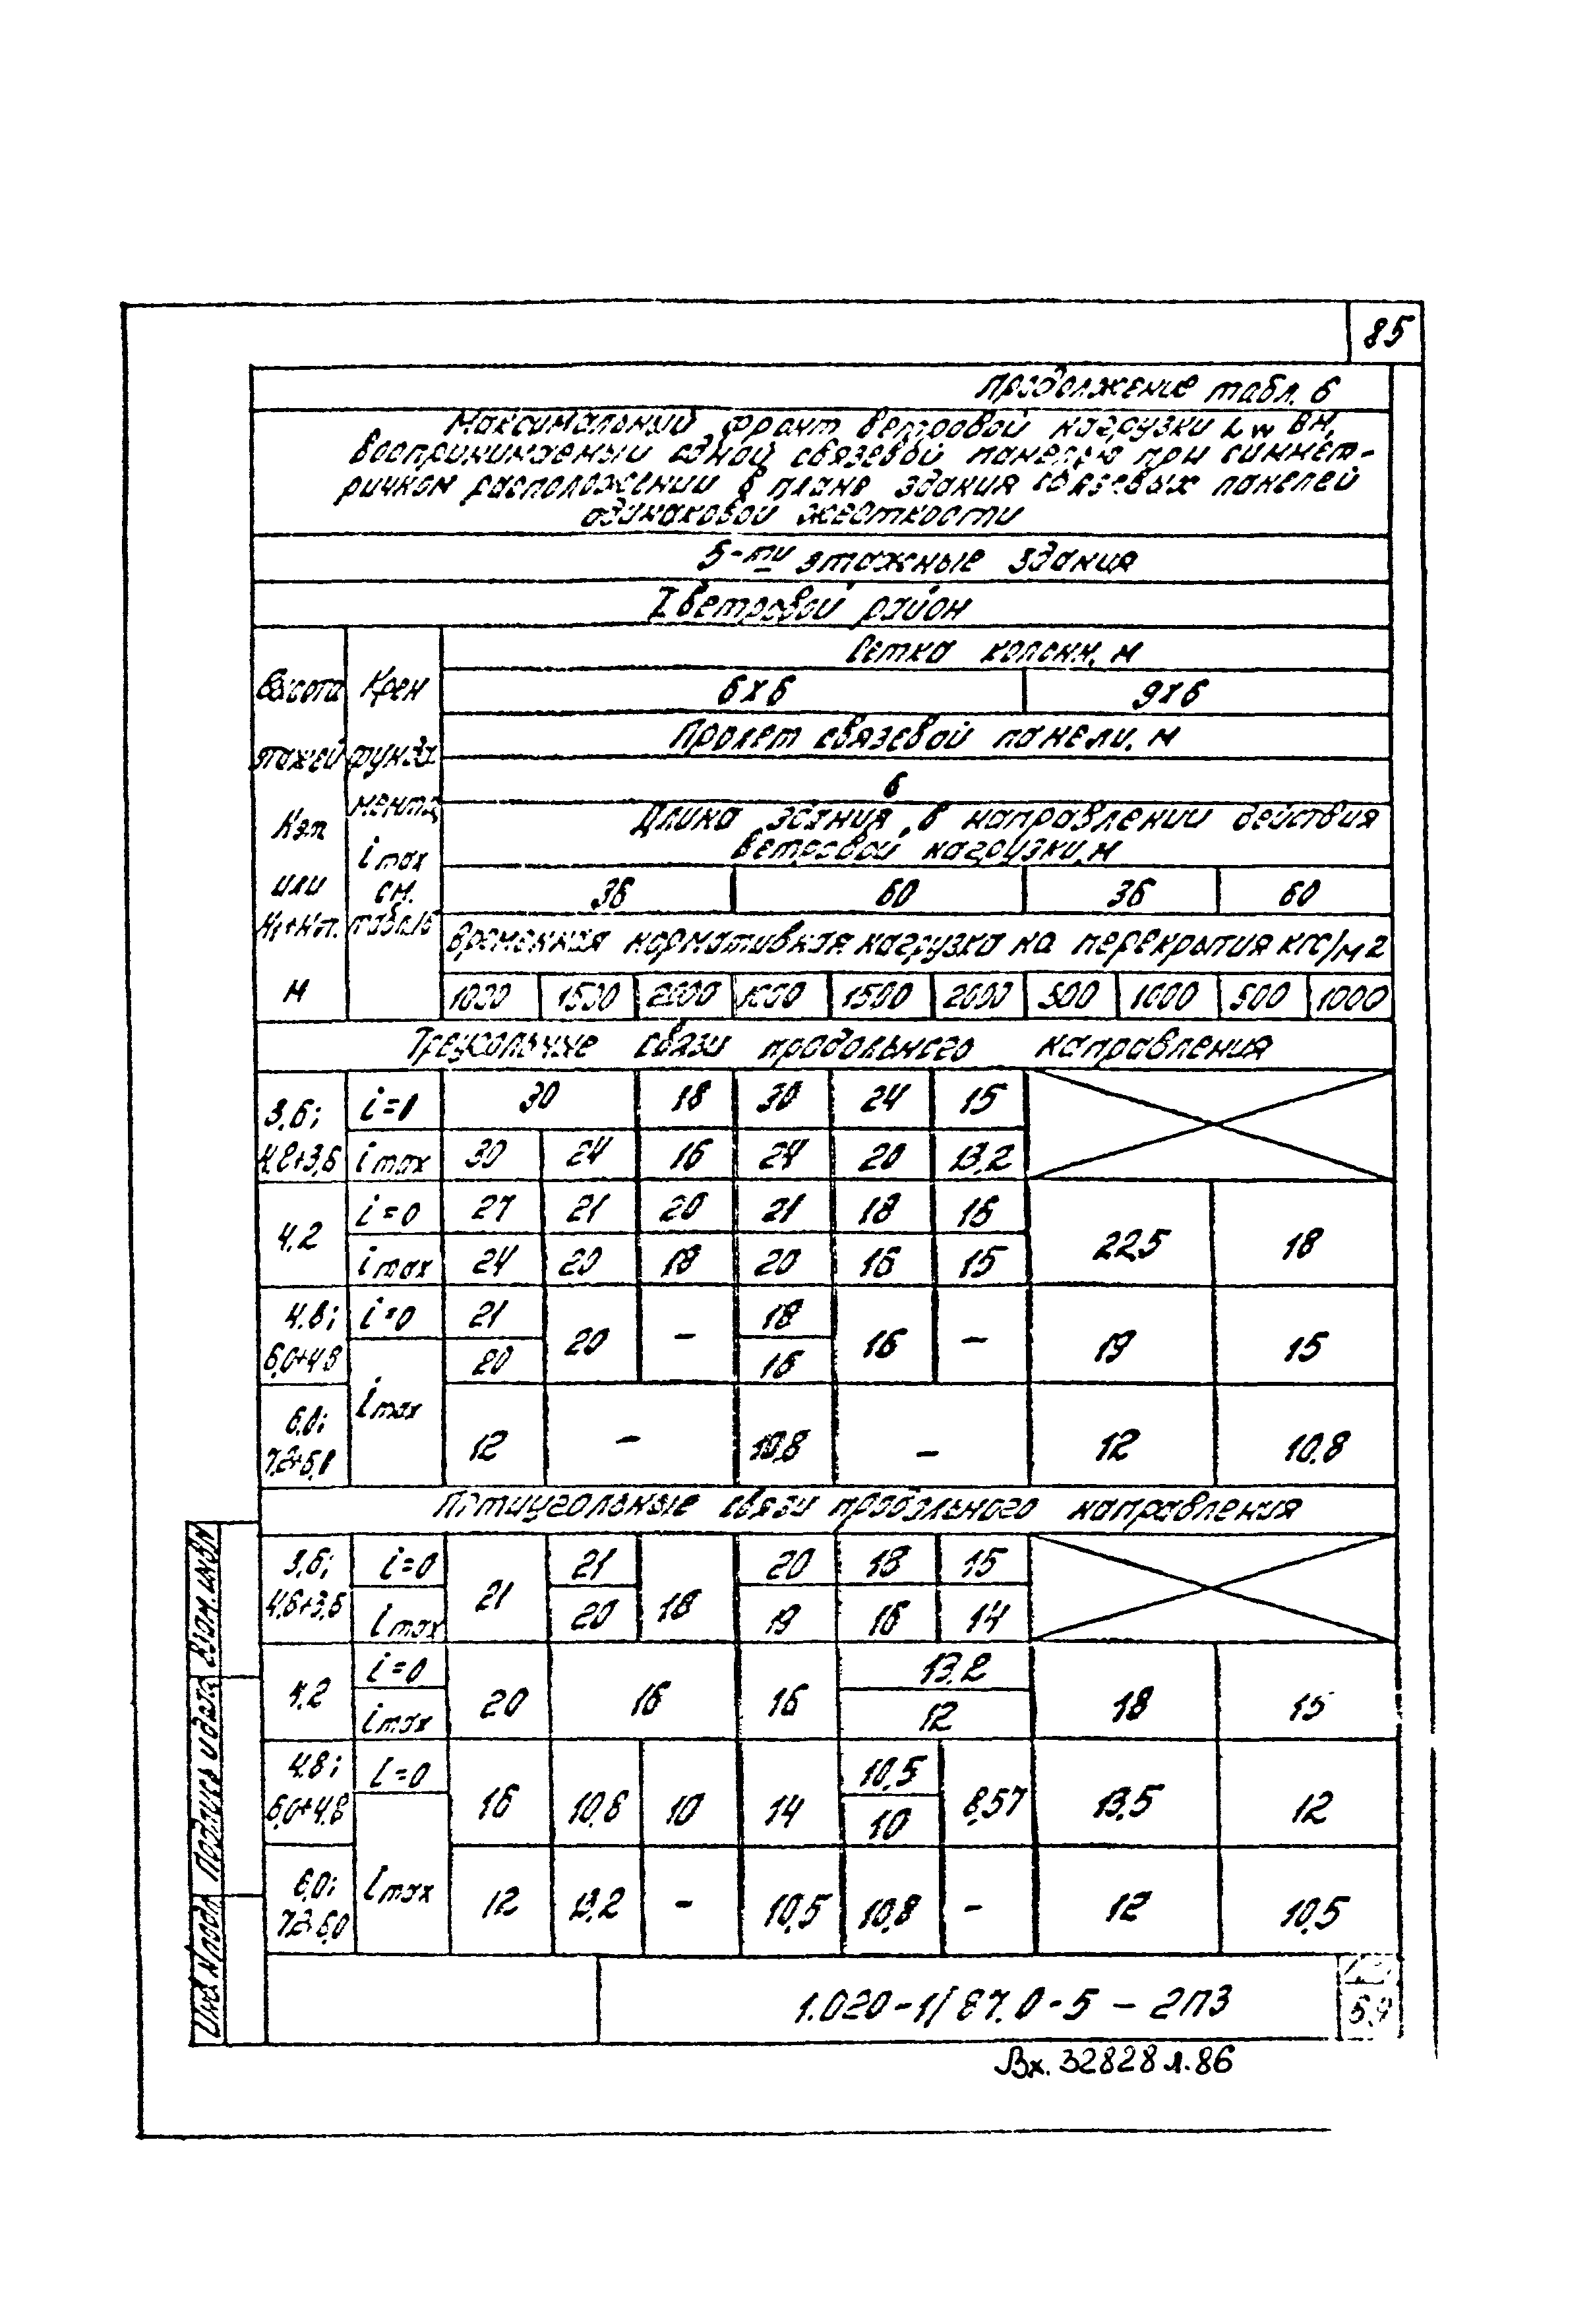 85
Продолжение табл. 6
Максимальный фронт ветровой нагрузки Lw в м,
воспринимаемый одной связевой панелью при симмет-
ричном расположении в плане здания связевых панелей
одинаковой жесткости
5-ти этажные здания
I ветровой район
Высота этажей Нэт или Н1+Нэт. м
Крен фундамента i max см. табл.16
Сетка колонн, м
6х6 9х6
Пролет связевой панели, м
6
Длина здания в направлении действия
ветровой нагрузки, м
36 60 36 60
Временная нормативная нагрузка на перекрытия кгс/м2
1000 1500 2000 1000 1500 2000 500 1000 500 1000
Треугольные связи продольного направления
3,6; 4,8+3,6
i=0 30 18 30 24 15
i max 30 24 16 24 20 13,2
4.2
i=0 27 21 20 21 18 16
22,5 18
i max 24 20 18 20 16 15
4.8; 6,0+4,8
i=0 21 20 - 18 16 -
19 15
i max 20 16
6,0; 7,2+6,0
12 - 10,8 - 12 10.8
Пятиугольные связи продольного направления
3,6; 4,8+3,6
i=0 21 21 18 20 18 15
i max 20 19 16 14
4.2
i=0 20 16 16 13,2 18 15
i max 12
4.8; 6,0+4,8
i=0 16 10,8 10 14 10,5 8,57 13,5 12
i max 10
6,0; 7,2+6,0
12 13,2 - 10,5 10,8 - 12 10,5
Инв. N подл. Подпись и дата Взам. инв. N
1.020-1/87.0-5-2ПЗ
Вх. 32828 л. 86